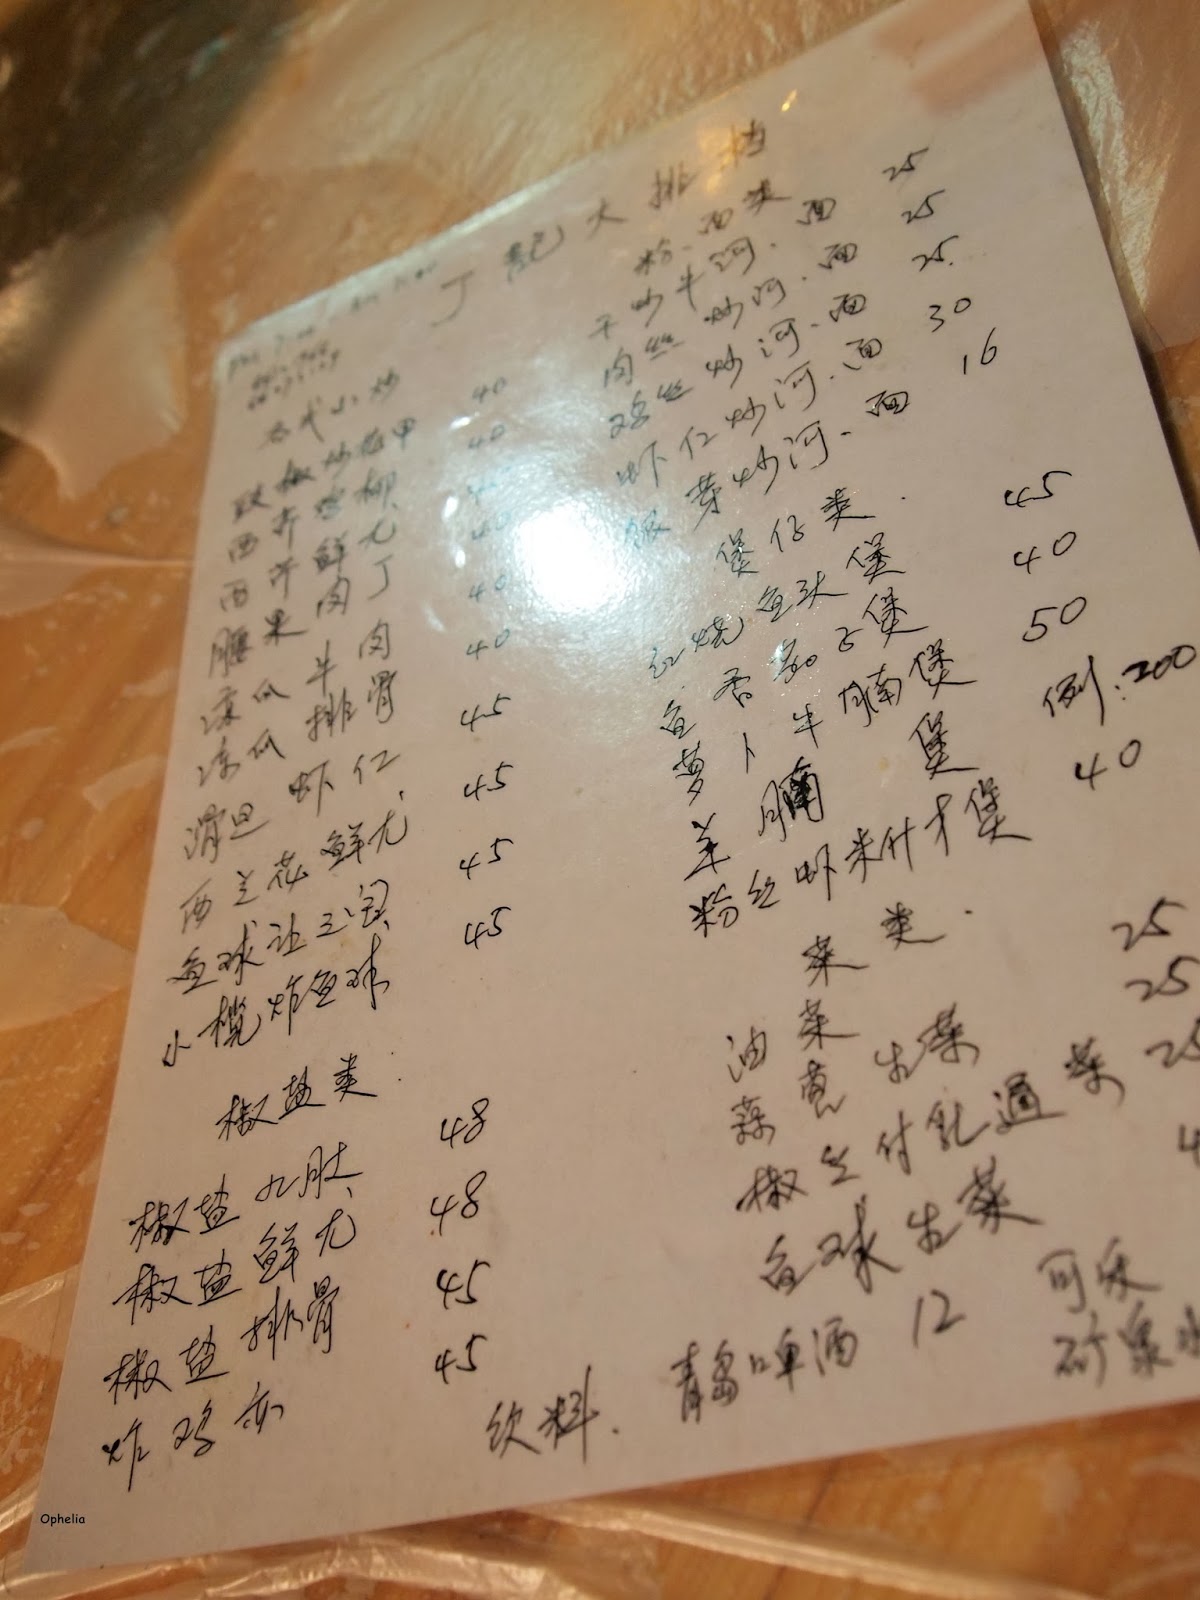 丁記大排档
各式小炒
豉椒炒花甲 40
西芹鸡柳 40
西芹鲜尤
腰果肉丁 40
凉瓜牛肉 40
凉瓜排骨 40
滑旦虾仁 45
西兰花鲜尤 45
鱼球让三宝 45
小榄炸鱼球 45
椒盐类
椒盐九肚 48
椒盐鲜尤 48
椒盐排骨 45
炸鸡亦 45
粉.面类
干炒牛河.面 25
肉丝炒河.面 25
鸡丝炒河.面 25
虾仁炒河.面 30
银芽炒河.面 16
煲仔类
红烧鱼头煲 45
鱼香茄子煲 40
萝卜牛腩煲 50
羊腩煲 例:200
粉丝虾米什才煲 40
菜类
油菜 25
蒜茸生菜 25
椒丝付乳通菜 25
鱼球生菜
饮料. 青島啤酒 12 可乐
矿泉水
Ophelia